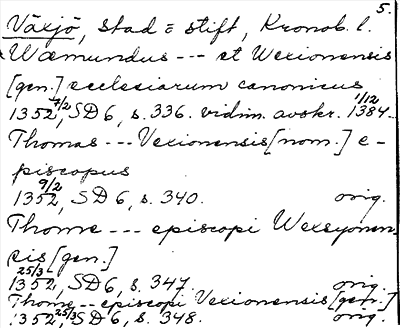 5.
Växjö, stad o stift, Kronob. l.
Wæmundus --- et Wexionensis
[gen.] ecclesiarum canonicus
1352 7/2, SD 6, s. 336. vidim. avskr. 1384 1/12.
Thomas --- Vexionensis [nom.] e-
piscopus
1352 9/2, SD 6, s. 340. orig.
Thome --- episcopi Wexsyonen
sis [gen.]
1352 25/3, SD 6, s. 347. orig.
Thome --- episcopi Vexionensis [gen.]
1352 25/3 SD 6, s. 348. orig.